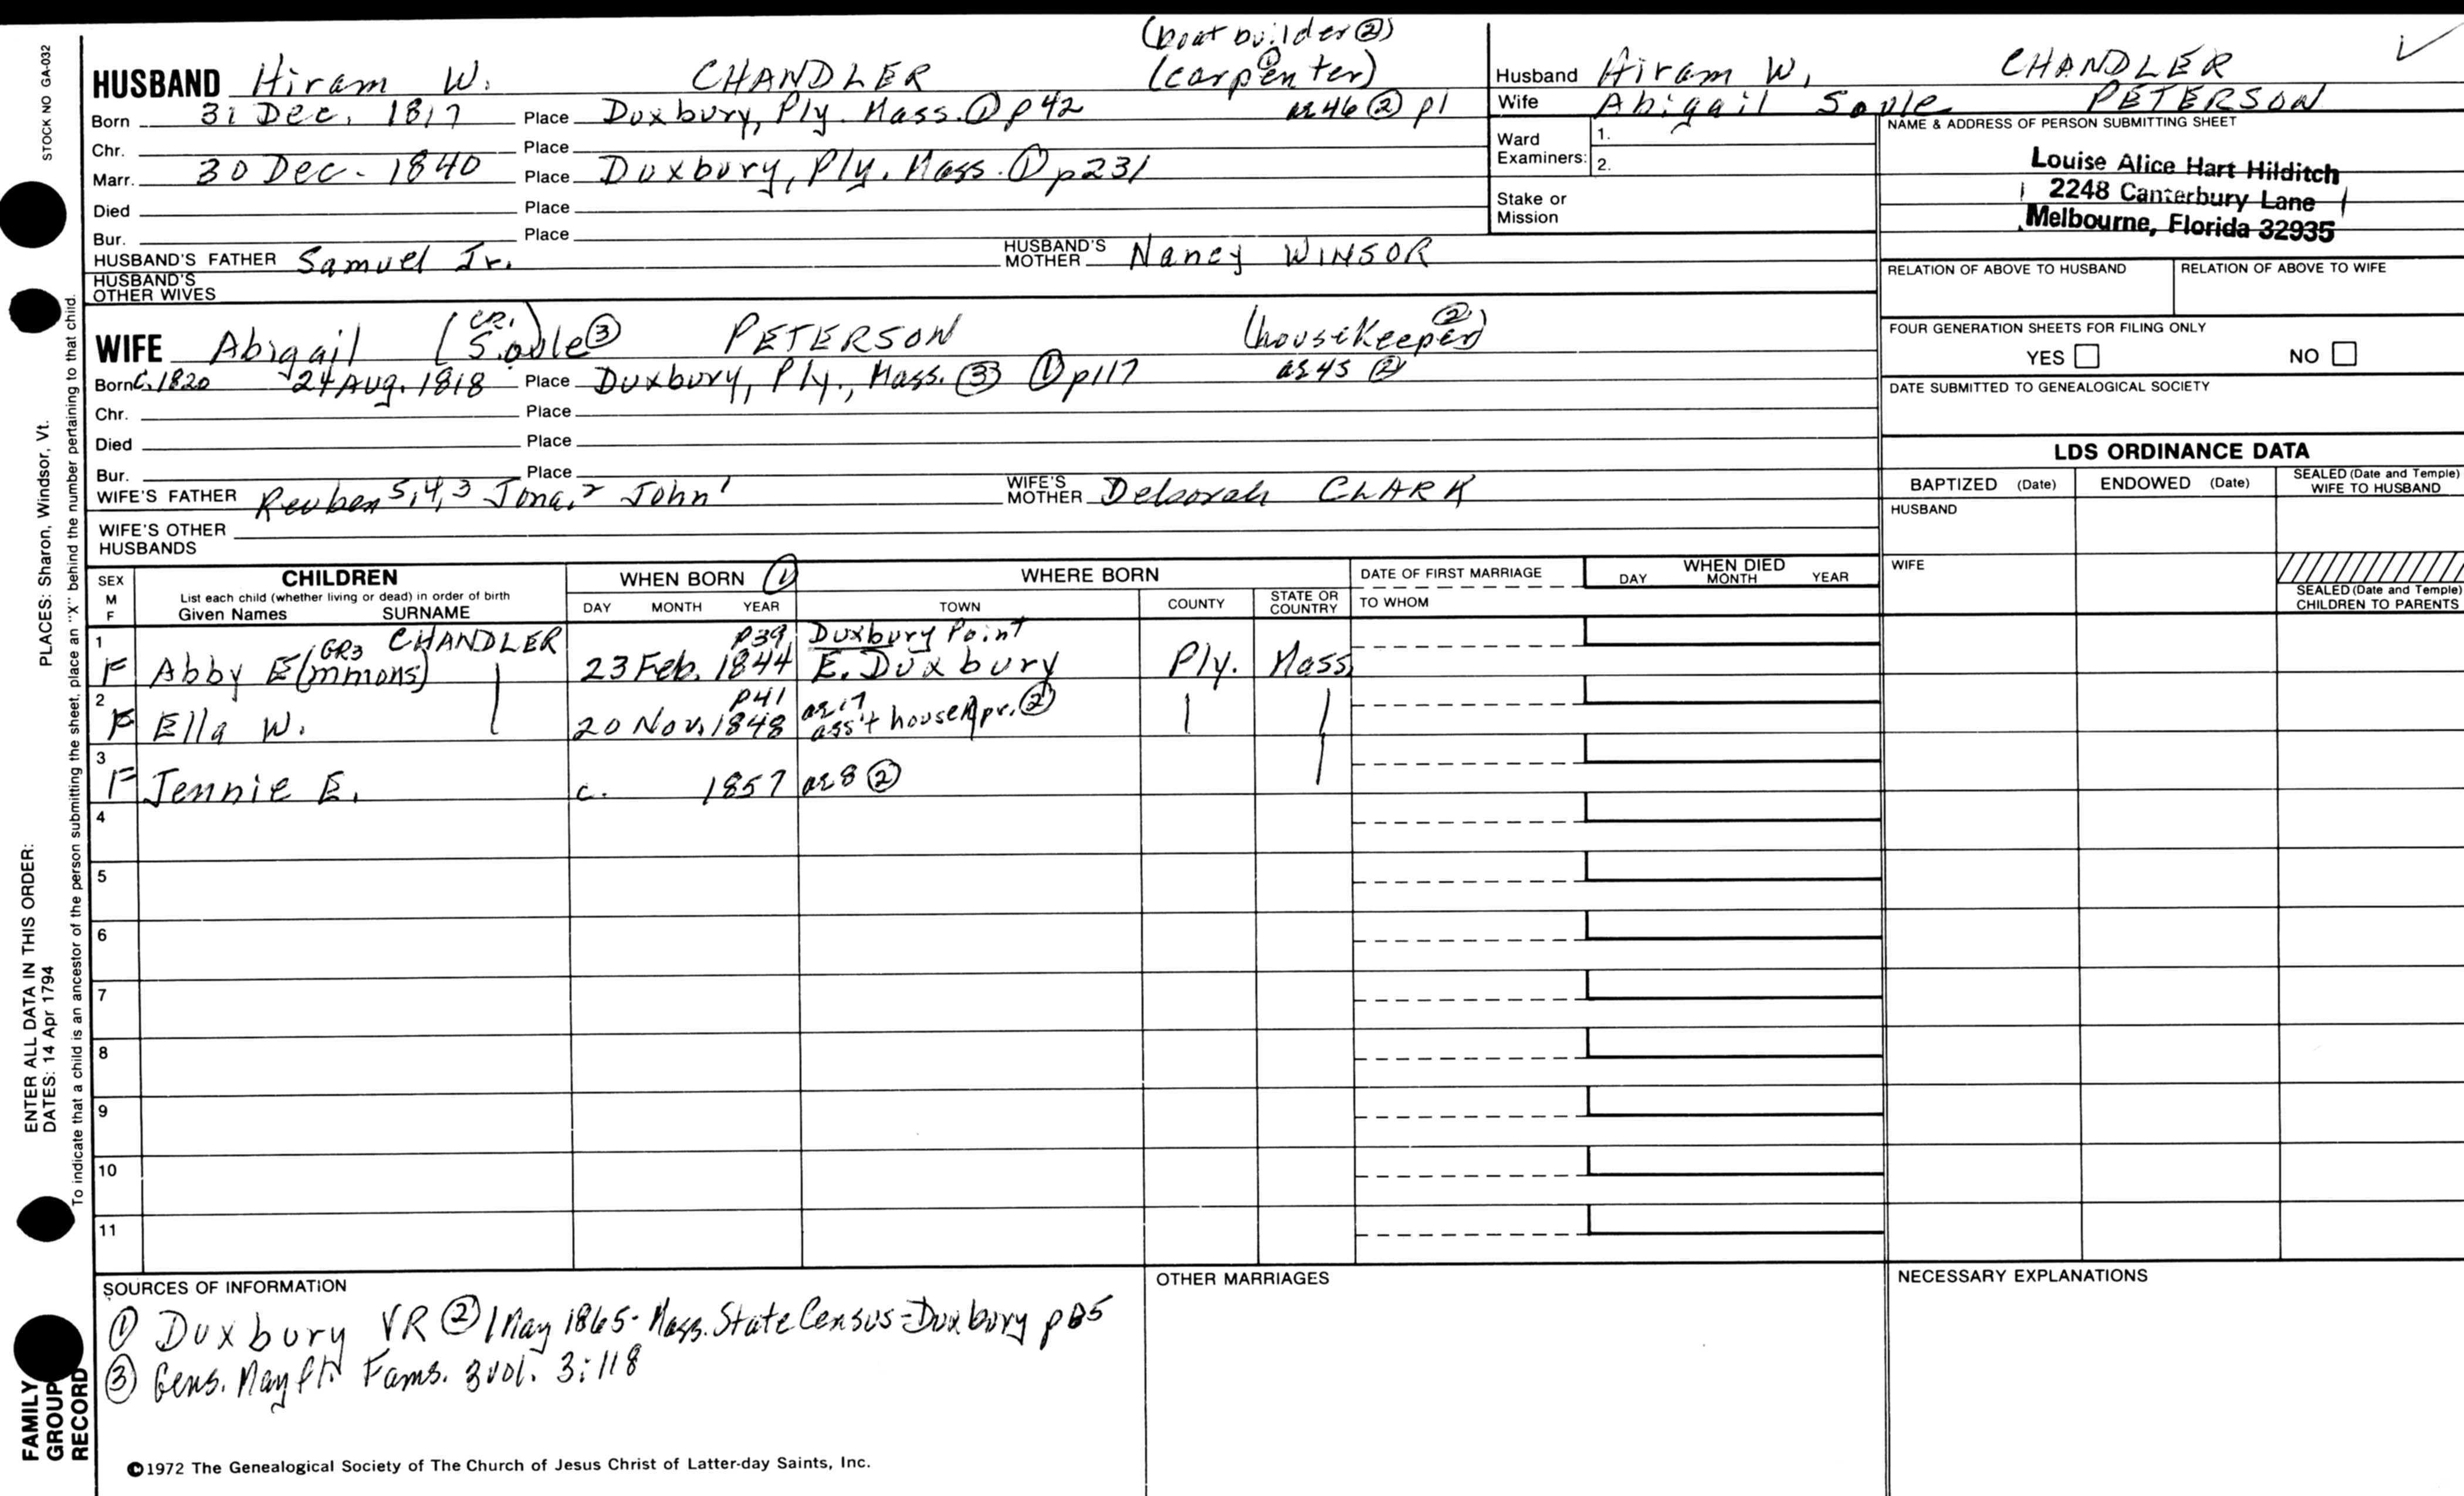 STOCK NO GA-032
PLACES: Sharon, Windsor, Vt.
ENTER ALL DATA IN THIS ORDER:
DATES: 14 Apr 1794
To indicate that a child is an ancestor of the person submitting the sheet, place an "X" behind the number pertaining to that child.
FAMILY GROUP RECORD
(boat builder ②)
HUSBAND Hiram W. CHANDLER (carpenter) ①
Born 31 Dec. 1817 Place Duxbury, Ply. Mass. ① p42 ae 46 ② p1
Chr. Place
Marr. 30 Dec. 1840 Place Duxbury, Ply. Mass. ① p231
Died Place
Bur. Place
HUSBAND'S FATHER Samuel Jr. HUSBAND'S MOTHER Nancy WINSOR
HUSBAND'S OTHER WIVES
WIFE Abigail (Soule) ③ PETERSON (housekeeper) ②
Born c. 1820 24 Aug. 1818 Place Duxbury, Ply., Mass. ③ ① p117 ae 45 ②
Chr. Place
Died Place
Bur. Place
WIFE'S FATHER Reuben 5,4,3 Jona.2 John 1 WIFE'S MOTHER Deborah CLARK
WIFE'S OTHER HUSBANDS
Husband Hiram W. CHANDLER
Wife Abigail Soule PETERSON
Ward Examiners: 1.
2.
Stake or Mission
NAME & ADDRESS OF PERSON SUBMITTING SHEET
Louise Alice Hart Hilditch
2248 Canterbury Lane
Melbourne, Florida 32935
RELATION OF ABOVE TO HUSBAND RELATION OF ABOVE TO WIFE
FOUR GENERATION SHEETS FOR FILING ONLY
YES NO
DATE SUBMITTED TO GENEALOGICAL SOCIETY
LDS ORDINANCE DATA
BAPTIZED (Date) ENDOWED (Date) SEALED (Date and Temple) WIFE TO HUSBAND
HUSBAND
WIFE
SEALED (Date and Temple) CHILDREN TO PARENTS
SEX M F CHILDREN WHEN BORN ① WHERE BORN DATE OF FIRST MARRIAGE WHEN DIED
List each child (whether living or dead) in order of birth
Given Names SURNAME DAY MONTH YEAR TOWN COUNTY STATE OR COUNTRY TO WHOM DAY MONTH YEAR
1 GR3 CHANDLER p39 Duxbury Point
F Abby E(mmons) 23 Feb. 1844 E. Duxbury Ply. Mass.
2 p41 ae 17
F Ella W. 20 Nov. 1848 ass't housekpr. ②
3
F Jennie E. c. 1857 ae 8 ②
4
5
6
7
8
9
10
11
SOURCES OF INFORMATION
① Duxbury VR ② 1 May 1865 - Mass. State Census - Duxbury
③ Gens. Mayfl. Fams. 3 vol. 3:118
OTHER MARRIAGES
NECESSARY EXPLANATIONS
©1972 The Genealogical Society of The Church of Jesus Christ of Latter-day Saints, Inc.